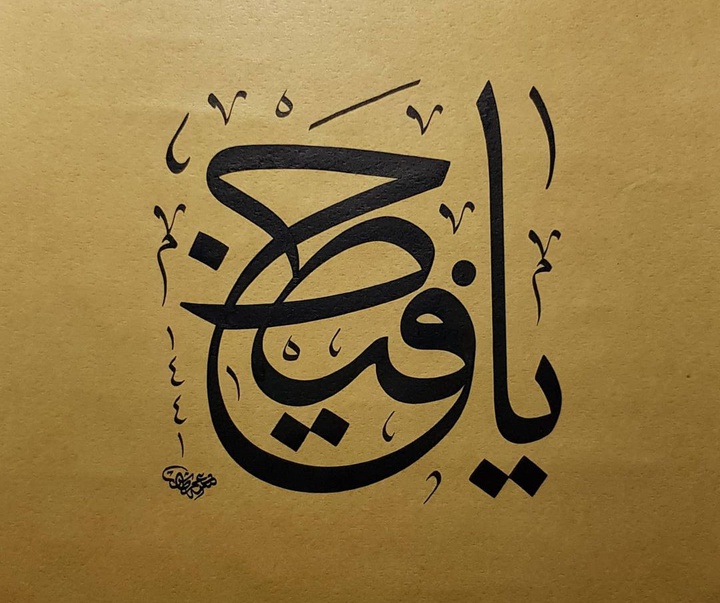 يا فياض
١٤٤١